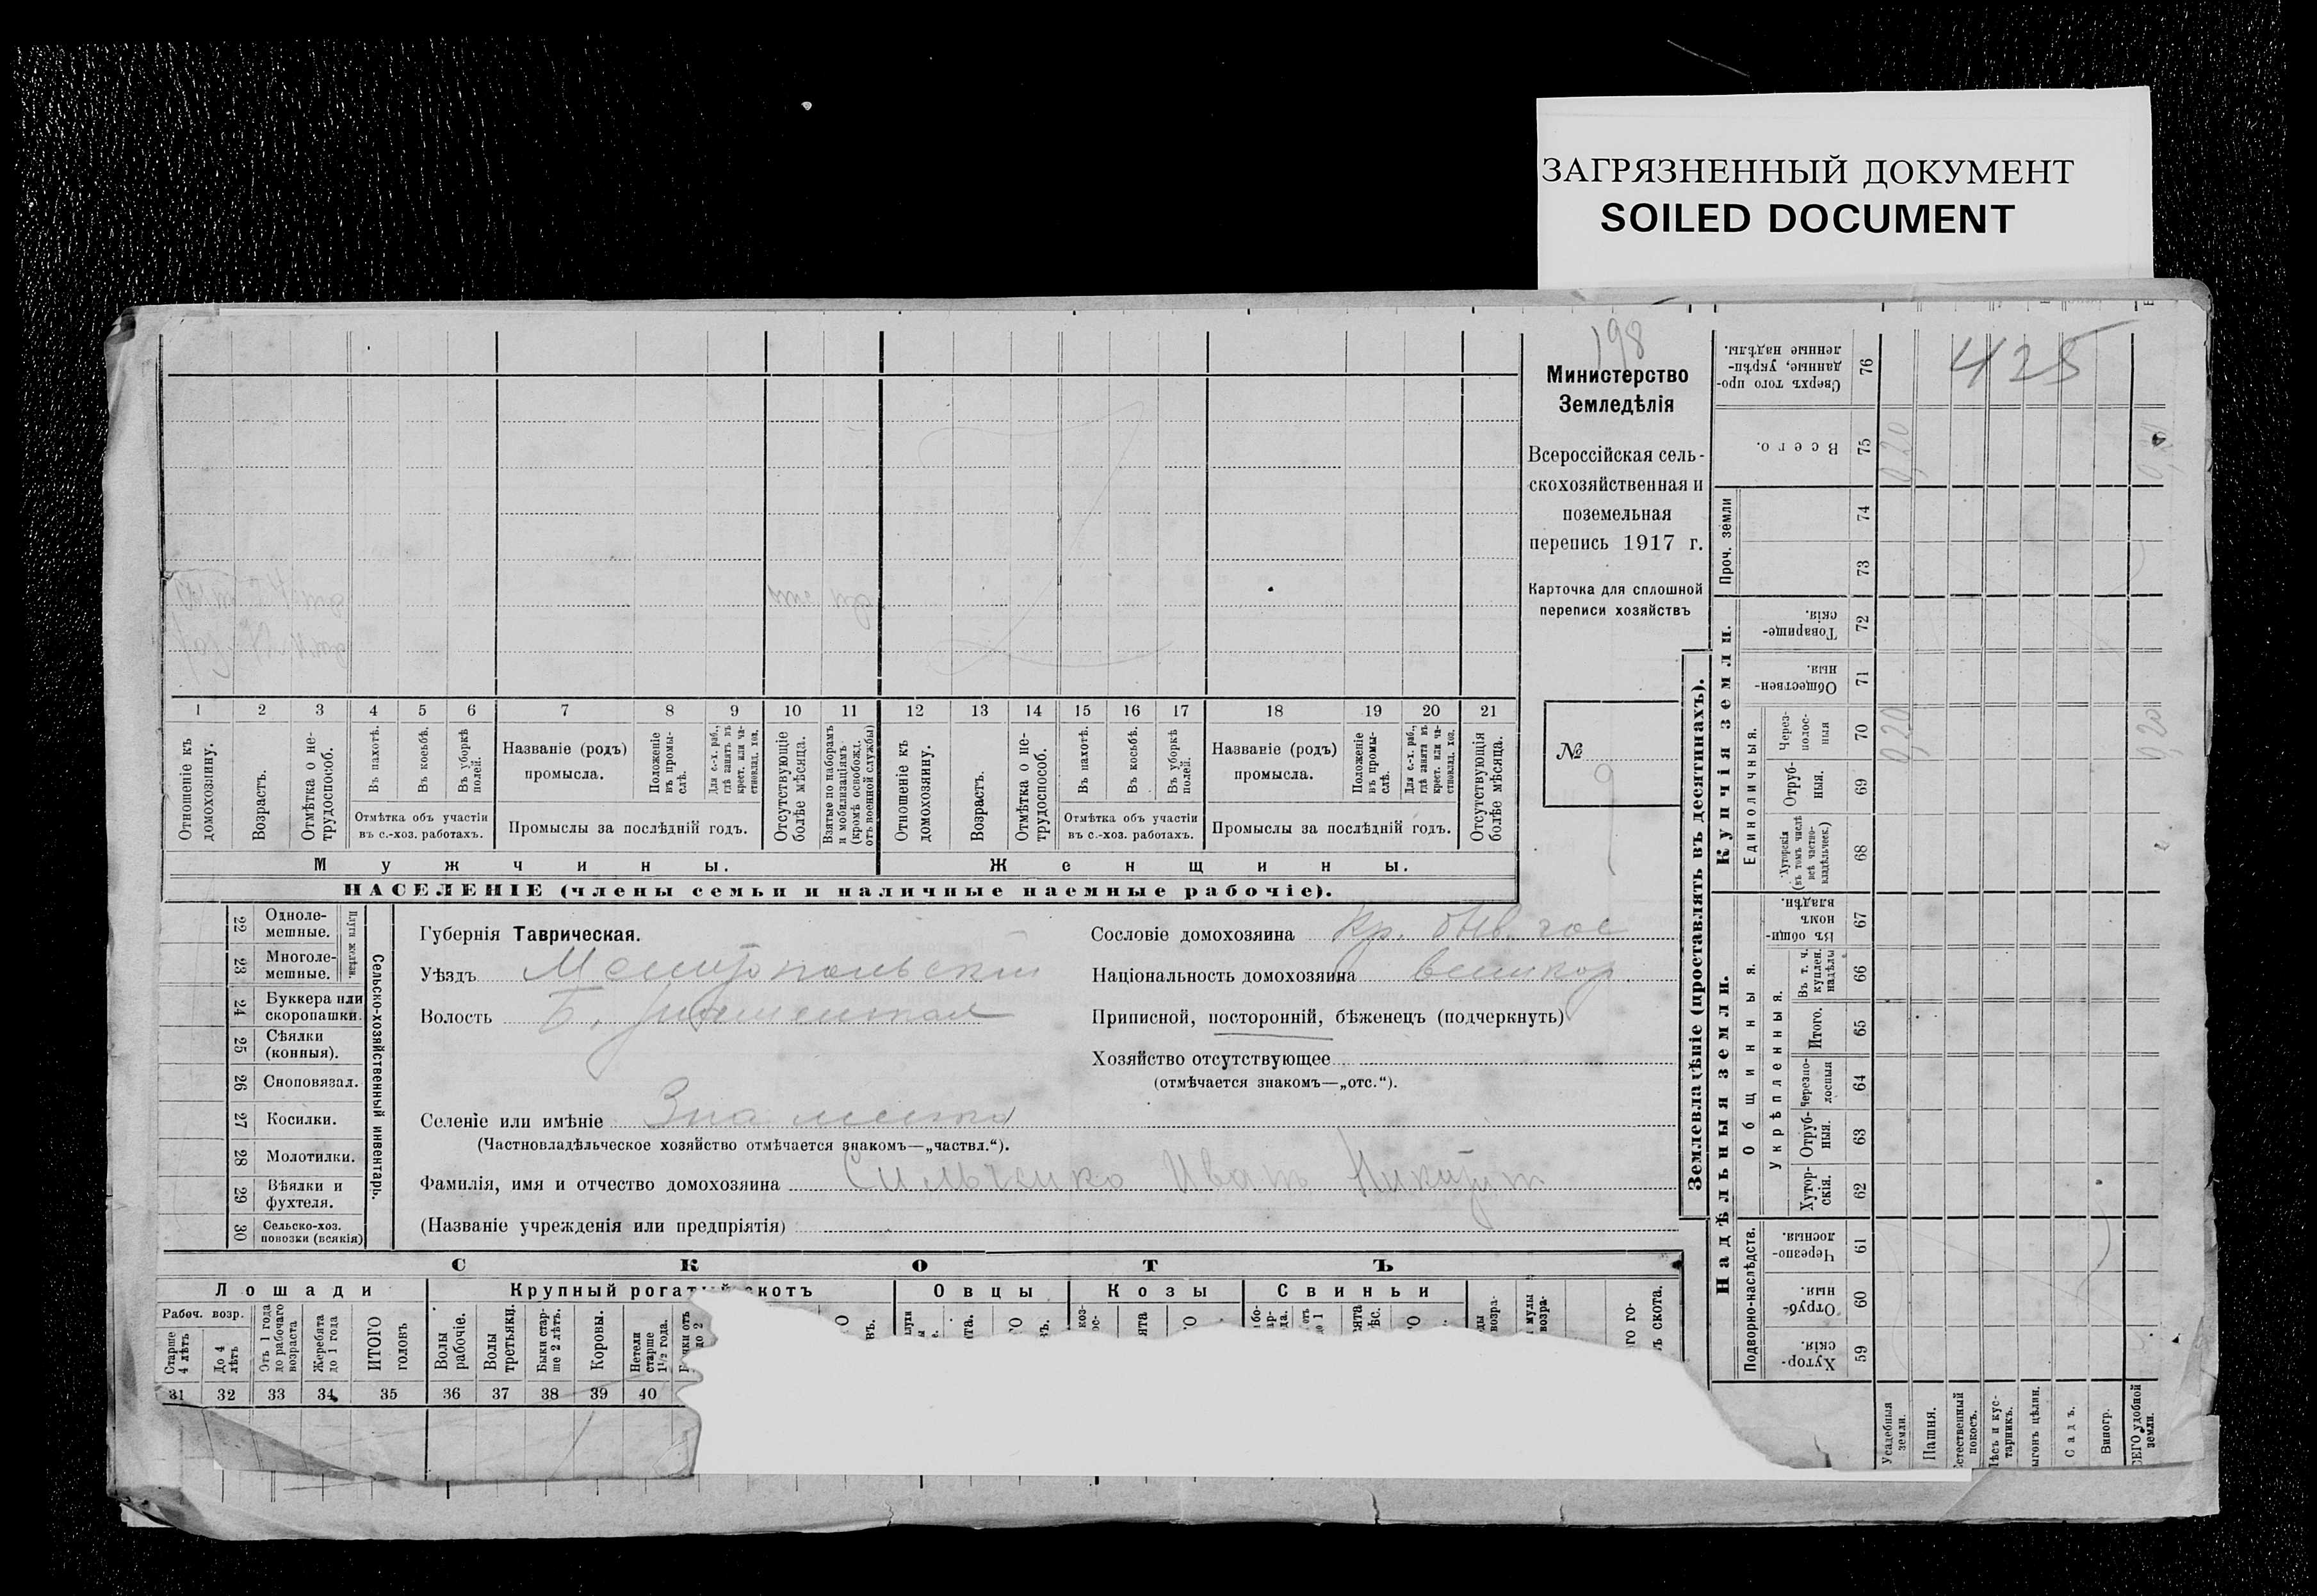 ЗАГРЯЗНЕННЫЙ ДОКУМЕНТ
SOILED DOCUMENT
198
Министерство
Земледѣлія
Всероссійская сель-
скохозяйственная и
поземельная
перепись 1917 г.
Карточка для сплошной
переписи хозяйствъ
№
9
1 2 3 4 5 6 7 8 9 10 11 12 13 14 15 16 17 18 19 20 21
Отношеніе къ домохозяину.
Возрастъ.
Отмѣтка о не-трудоспособ.
Въ пахотѣ.
Въ косьбѣ.
Въ уборкѣ полей.
Отмѣтка объ участіи
въ с.-хоз. работахъ.
Названіе (родъ)
промысла.
Положеніе въ промы-слѣ.
Для с.-х. раб., гдѣ занятъ въ крест. или ча-стновлад. хоз.
Промыслы за послѣдній годъ.
Отсутствующіе болѣе мѣсяца.
Взятые по наборамъ и мобилизаціямъ (кромѣ освобожд. отъ военной службы)
Отношеніе къ домохозяину.
Возрастъ.
Отмѣтка о не-трудоспособ.
Въ пахотѣ.
Въ косьбѣ.
Въ уборкѣ полей.
Отмѣтка объ участіи
въ с.-хоз. работахъ.
Названіе (родъ)
промысла.
Положеніе въ промы-слѣ.
Для с.-х. раб., гдѣ занятъ въ крест. или ча-стновлад. хоз.
Промыслы за послѣдній годъ.
Отсутствующія болѣе мѣсяца.
Мужчины. Женщины.
НАСЕЛЕНІЕ (члены семьи и наличные наемные рабочіе).
Сельско-хозяйственный инвентарь.
Плуги желѣзн.
22 Одноле-мешные.
23 Многоле-мешные.
24 Буккера или скоропашки.
25 Сѣялки (конныя).
26 Сноповязал.
27 Косилки.
28 Молотилки.
29 Вѣялки и фухтеля.
30 Сельско-хоз. повозки (всякія)
Губернія Таврическая.
Уѣздъ Мелитопольскій
Волость Б.
Сословіе домохозяина Кр. быв. гос
Національность домохозяина великор.
Приписной, посторонній, бѣженецъ (подчеркнуть)
Хозяйство отсутствующее
(отмѣчается знакомъ—„отс.“).
Селеніе или имѣніе Знаменка
(Частновладѣльческое хозяйство отмѣчается знакомъ—„частвл.“).
Фамилія, имя и отчество домохозяина Сильченко Иванъ Никит
(Названіе учрежденія или предпріятія)
СКОТЪ
Лошади
Крупный рогатый скотъ
Овцы
Козы
Свиньи
Рабоч. возр.
Старше 4 лѣтъ
До 4 лѣтъ
Отъ 1 года до рабочаго возраста
Жеребята до 1 года
ИТОГО головъ
Волы рабочіе.
Волы третьяки.
Быки стар-ше 2 лѣтъ.
Коровы.
Нетели старше 1½ года.
31 32 33 34 35 36 37 38 39 40
Землевладѣніе (проставлять въ десятинахъ).
Надѣльныя земли.
Купчія земли.
Проч. земли
Подворно-наслѣдств.
Общинныя.
Укрѣпленныя.
Единоличныя.
Сверхъ того про-данные, укрѣп-ленные надѣлы. 76
425
Всего. 75 0,20
74
73
Товарище-скія. 72
Обществен-ныя. 71
Через-полос-ныя 70 0,20 0,20
Отруб-ныя. 69
Хуторскія (въ томъ числѣ всѣ частно-владѣльческ.) 68
Въ общин-номъ владѣн. 67
Въ т. ч. куплен. надѣлы 66
Итого. 65
Черезпо-лосныя 64
Отруб-ныя. 63
Хутор-скія. 62
Черезпо-лосныя. 61
Отруб-ныя. 60
Хутор-скія. 59
Усадебныя земли.
Пашня.
Естественный покосъ.
Лѣсъ и кус-тарникъ.
Садъ.
Виногр.